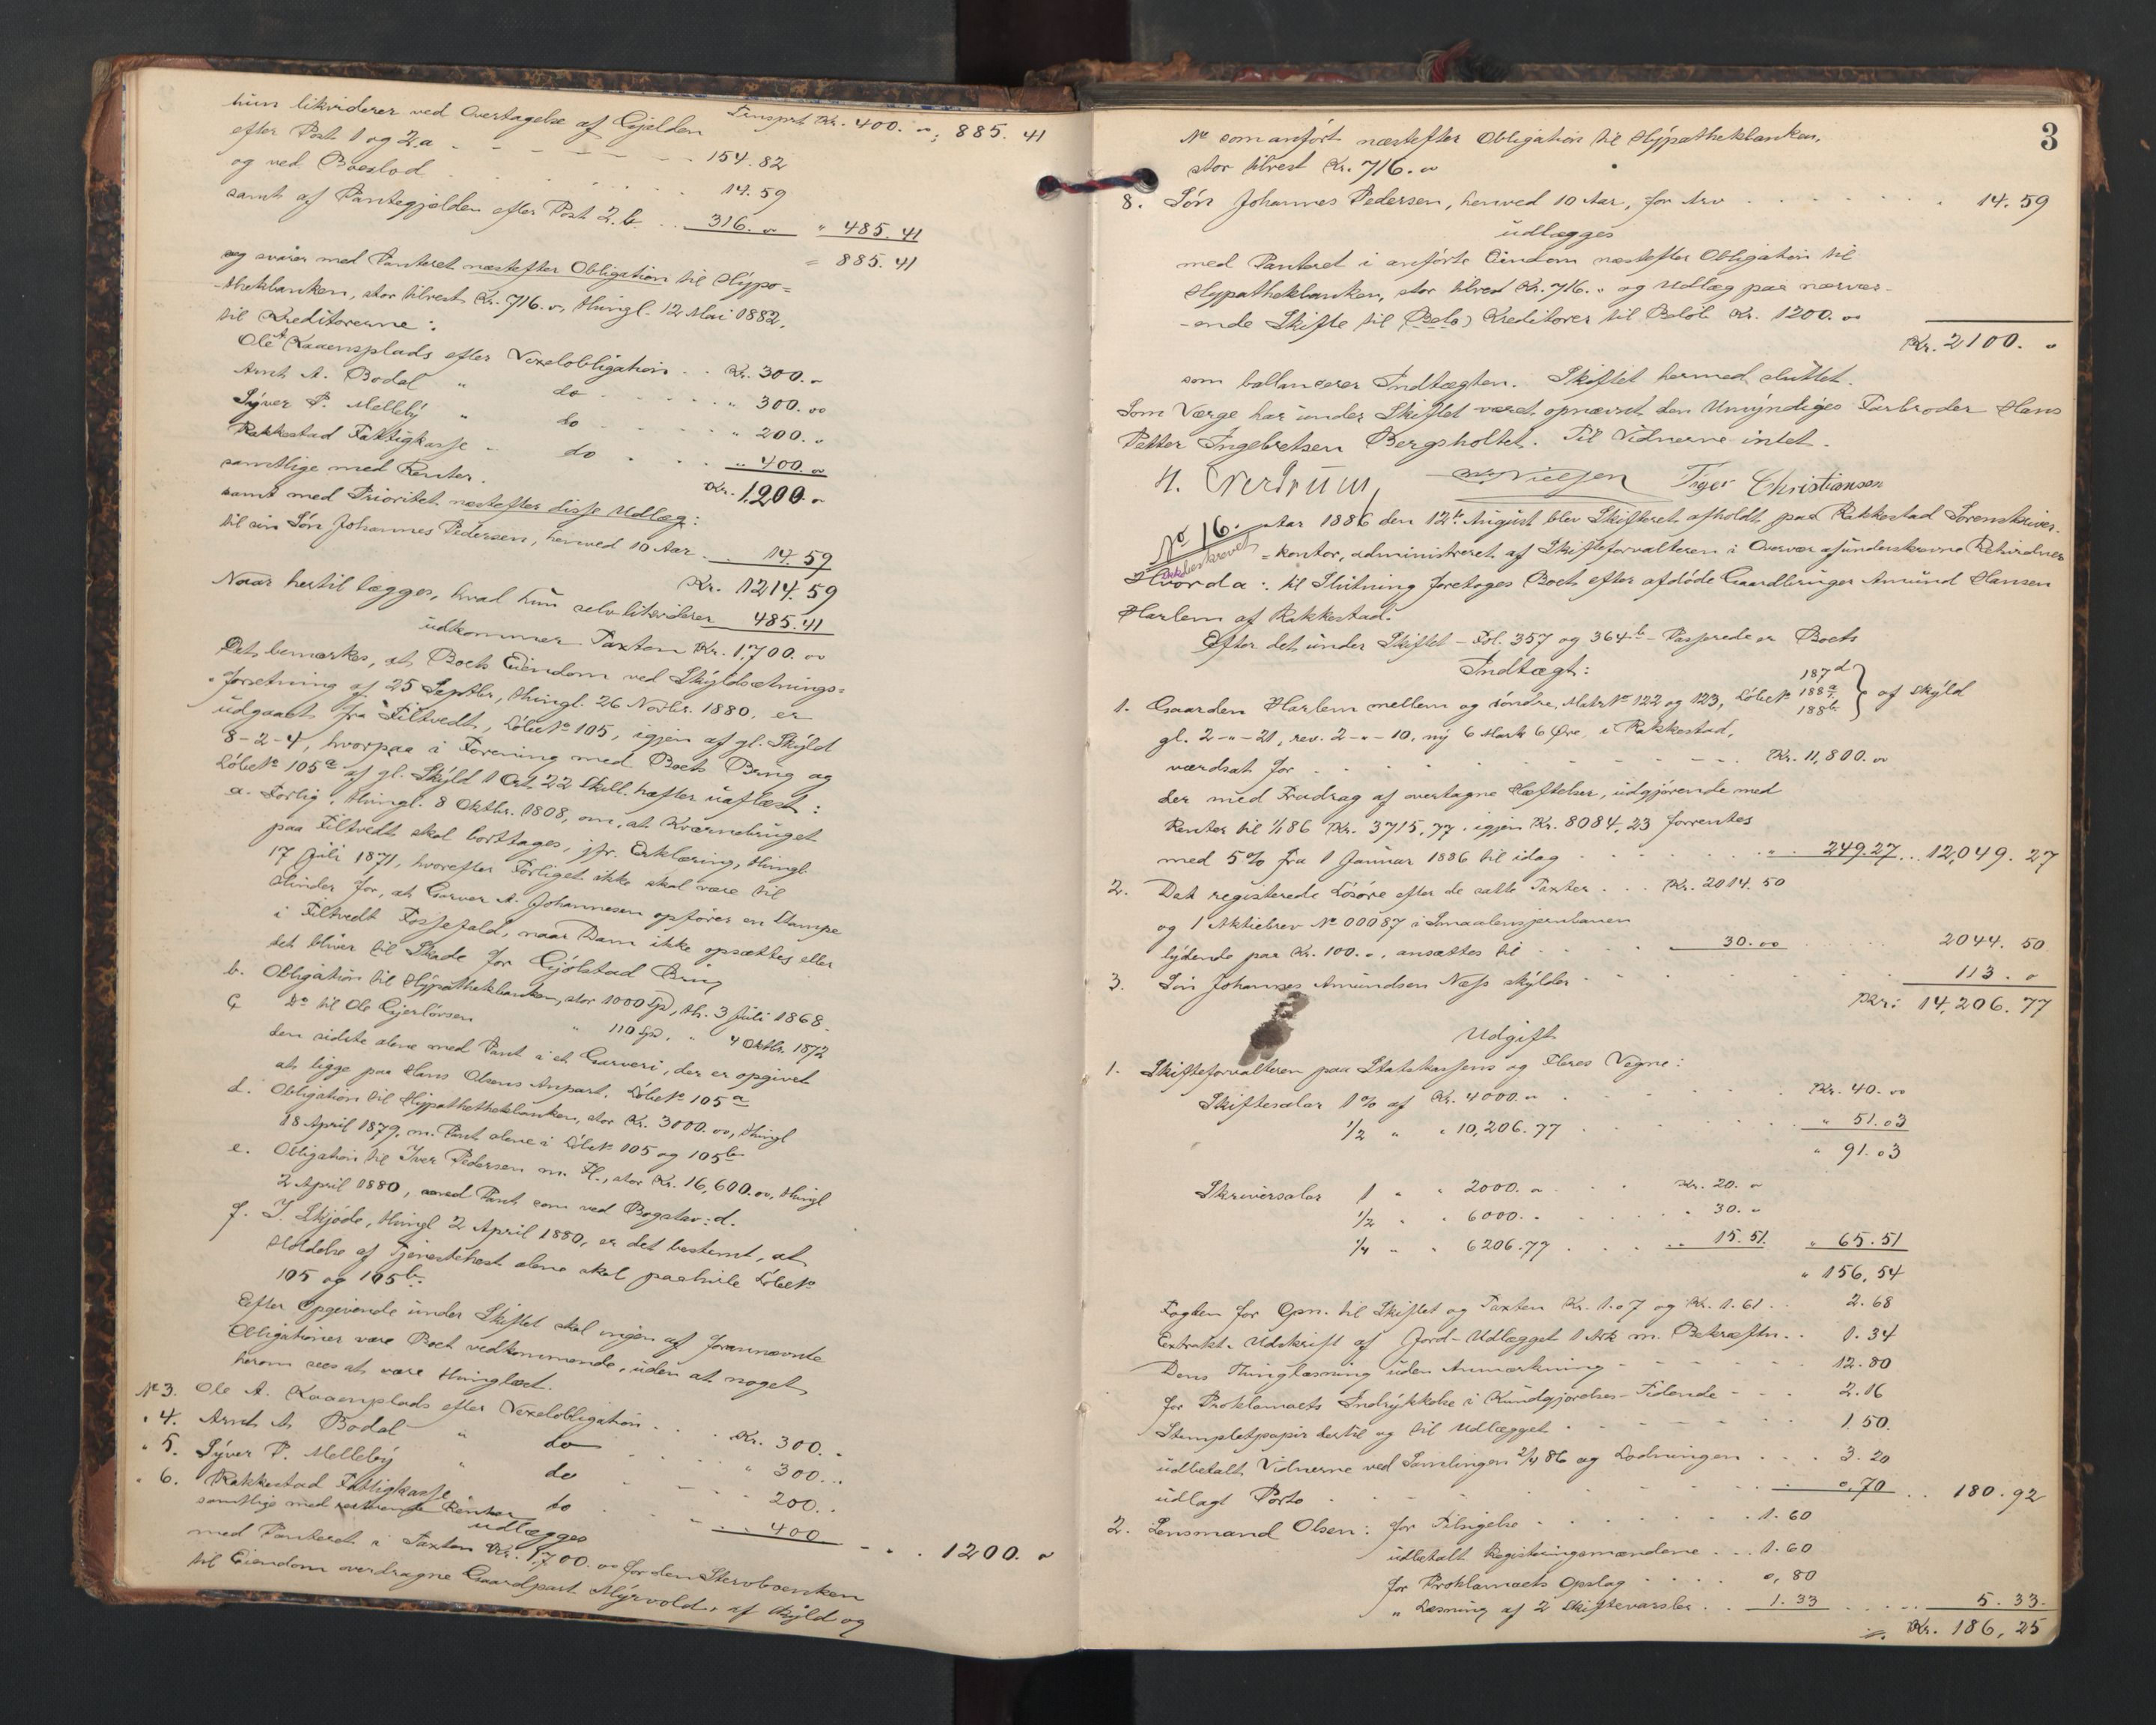 hun likviderer ved Overtagelse af Gjelden Tinsprt Kr. 400. „ ; 885. 41
efter Post 1 og 2.a - - - - - - 154. 82
og ved Boeslod . . . . . . . 14. 59
samt af Pantegjelden efter Post 2.b. . . 316. „ „ 485. 41
= 885. 41
og svarer med Panteret næstefter Obligation til Hypo=
theklanken, stor tilrest Kr. 716. oo, thingl. 12 Mai 1882,
til Kreditorerne:
Ole A Kaaensplads efter Vexelobligation . . Kr. 300. „
Arnt A. Bodal „ do . . . . . „ 300. oo
Syver P. Melleby „ do . . . . . „ 200. „
Rakkestad Fattigkasse „ do . . . . „ 400. oo
samtlige med Renter. Kr. 1200. „
samt med Prioritet næstefter disse Udlæg:
til sin Søn Johannes Pedersen, henved 10 Aar . . . 14. 59
Kr. 1214. 59
Naar hertil lægges, hvad hun selv likviderer 485. 41
udkommer Taxten Kr. 1,700. oo
Det bemærkes, at Boets Eiendom ved Skyldsætnings=
„forretning af 25 Septbr, thingl. 26 Novbr. 1880, er
udgaaet fra Filtvedt, Løbe No 105, igjen af gl. Skyld
8-2-4, hvorpaa i Forening med Boets Brug og
Løbe No 105a af gl. Skyld 1 Ort 22 Skill. hæfter uaflæst:
a. Forlig, thingl. 8 Oktbr. 1808, om, at Kværnebruget
paa Filtvedt skal borttages, jfr. Erklæring, thingl.
17 Juli 1871, hvorefter Forliget ikke skal være til
Hinder for, at Garver A. Johannesen opfører en Stampe
i Filtvedt Fossefald, naar Dam ikke opsættes eller
det bliver til Skade for Gjølstad Brug
b. Obligation til Hypothekbanken, stor 1000 Spd, th. 3 Juli 1868.
c Do til Ole Gjerløvsen „ 110 Spd, „ 4 Oktbr. 1872
den sidste alene med Pant i et Garveri, der er opgivet
at ligge paa Hans Olsens Anpart, Løbe No 105a
d. Obligation til Hypothethekbanken, stor Kr. 3000. oo, thingl
18 April 1879, m. Pant alene i Løbe No 105 og 105b
e. Obligation til Iver Pedersen m. Fl., stor Kr. 16,600. oo, thingl
2 April 1880, med Pant som ved Bogstav: d.
f. I Skjøde, thingl 2 April 1880, er det bestemt, at
Holdelse af Tjenestehest alene skal paahvile Løbe No
105 og 105b.
Efter Opgivende under Skiftet skal ingen af forannævnte
Obligationer være Boet vedkommende, uden at noget
herom sees at være thinglæst.
No 3. Ole A. Kaaenplads efter Vexelobligation . . . Kr. 300. „
„ 4. Arnt A Bodal „ do . . . „ 300. „
„ 5. Syver P. Melleby „ do . . . 200. „
„ 6. Rakkestad Fattigkasse „ do - . . 400 - . . 1200. „
samtlige med resterende Renter
udlægges
med Panteret i Taxten Kr. 1,700. oo for den Stervboenken
til Eiendom overdragne Gaardpart Myrvold, af Skyld og
3
No som anført næstefter Obligation til Hypothekbanken,
stor tilrest Kr. 716. oo
8. Søn Johannes Pedersen, henved 10 Aar, for Arv . . . . . . 14. 59
udlægges
med Panteret i anførte Eiendom næstefter Obligation til
Hypothekbanken, stor tilrest Kr. 716. „ og Udlæg paa nærvær-
-ende Skifte til (Belø) Kreditorer til Beløb Kr. 1200. oo
Kr. 2100. „
som ballancerer Indtægten. Skiftet hermed sluttet.
Som Værge har under Skiftet været opnævnt den Umyndiges Farbroder Hans
Petter Ingebretsen Bergsholtet. Til Vidnerne intet.
H. Nerdrum, Nielsen Christiansen
No 16. Aar 1886 den 12te August blev Skifteret afholdt paa Rakkestad Sorenskriver-
=kontor, administreret af Skifteforvalteren i Overvær af underskrevne Retsvidner
ikke beskrevet
Hvorda: til Slutning foretoges Boet efter afdøde Gaardbruger Amund Hansen
Harlem af Rakkestad.
Efter det under Skiftet - Fol. 357 og 364b - Passerede er Boets
Indtægt:
1. Gaarden Harlem mellem og søndre, Matr No 122 og 123, Løbe No 187d 188a 188b } af Skyld
gl. 2-„-21, rev. 2-„-10, ny 6 Mark 6 Øre, i Rakkestad,
værdsat for . . . . . . . Kr. 11,800. oo
der med Fradrag af overtagne Hæftelser, udgjørende med
Renter til 1/1 86 Kr. 3715, 77, igjen Kr. 8084, 23 forrentes
med 5 % fra 1 Januar 1886 til idag . . . . . . „ 249. 27 . . 12,049. 27
2. Det registerede Løsøre efter de satte Taxter . . . Kr. 2014. 50
og 1 Aktiebrev No 00087 i Smaalensjernbanen
lydende paa Kr. 100. „, ansættes til . . . . 30. oo . . . 2044. 50
3. Søn Johannes Amundsen Næss skylder . . . . . . . 113. „
Kr: 14,206. 77
Udgift
1. Skifteforvalteren paa Statskassens og Fleres Vegne:
Skiftesalar 1 % af Kr. 4000. „ . . . . . . Kr. 40. oo
1/2 „ „ 10,206. 77 . . . . . . „ 51. 03
„ 91. 03
Skriversalar 1 „ „ 2000. „ . . . Kr. 20. „
1/2 „ „ 6000. „ . . . . . „ 30. „
1/4 „ „ 6206. 77 . . . . „ 15. 51. „ 65. 51
„ 156, 54
Fogden for Opn. til Skiftet og Taxten Kr. 1. 07 og Kr. 1. 61 . . 2. 68
Extrakt-Udskrift af Jord-Udlægget 1 Ark m. Bekræftn. . . 1. 34
Dens Thinglæsning uden Anmærkning - - - - - - 12. 80
for Proklamaets Indrykkelse i Kundgjørelses-Tidende - - - 2. 16
Stempletpapir dertil og til Udlægget - - - - - - 1. 50.
udbetalt Vidnerne ved Samlingen 2/4 86 og Lodningen . . . 3. 20
udlagt Porto . . . . . . . . 0, 70 . . 180. 92
2. Lensmand Olsen: for Tilsigelse . . . . . . . 1. 60
udbetalt Registringsmændene . . . 1. 60
for Proklamaets Opslag . . . . 0, 80
„ Læsning af 2 Skiftevarsler . . 1. 33 . . . . 5. 33.
Kr. 186, 25